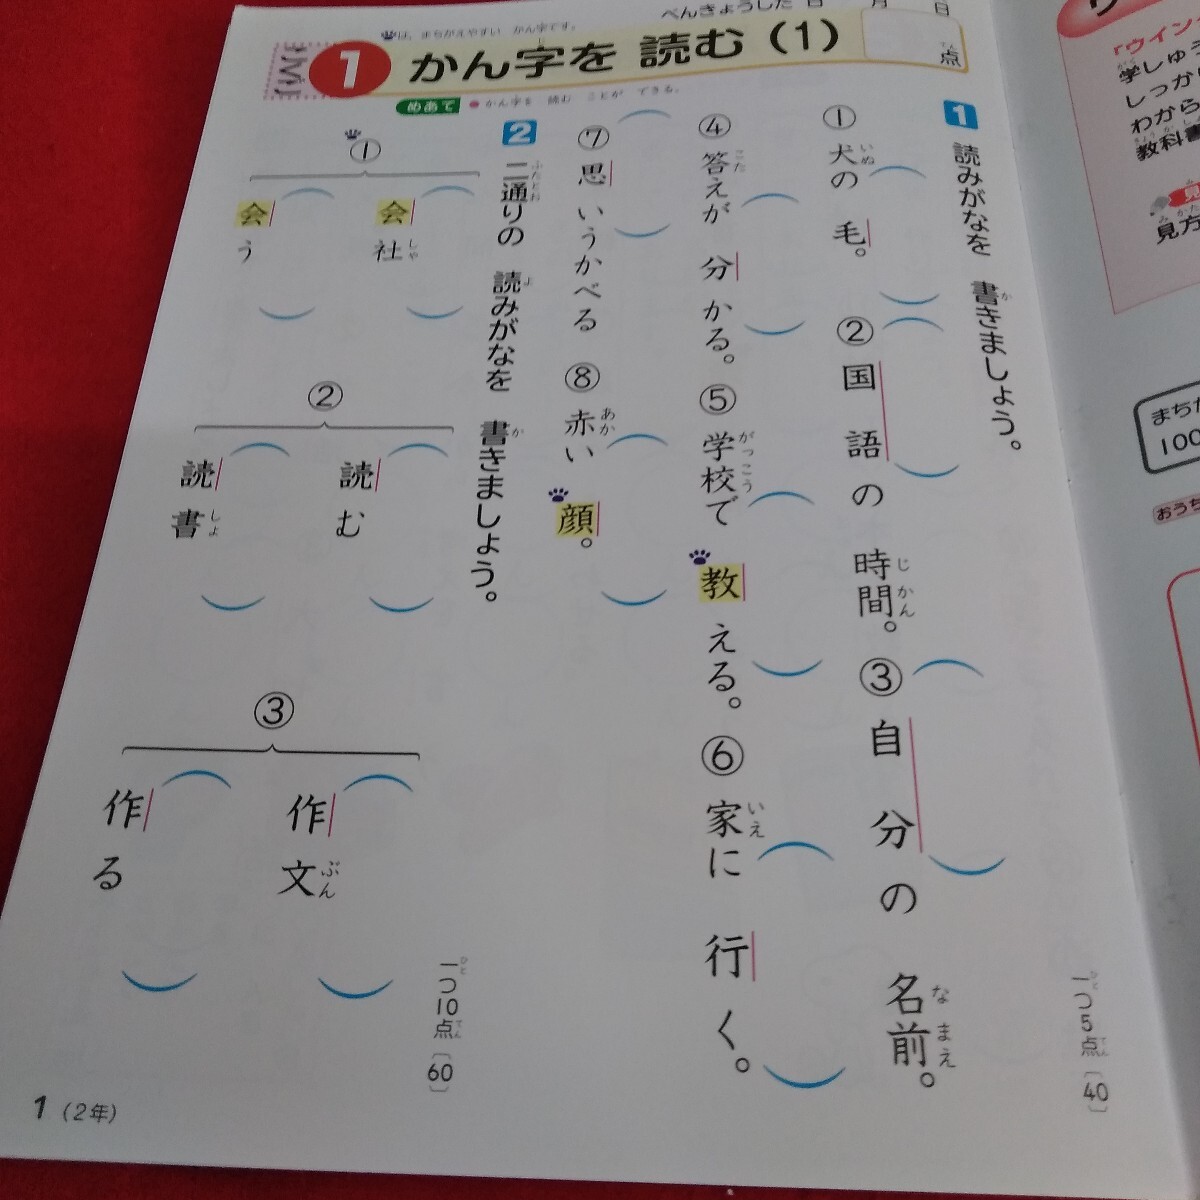 べんきょうした日　月　日
は、まちがえやすい　かん字です。
1 かん字を 読む（1）
点
めあて ●かん字を　読む　ことが　できる。
1 読みがなを　書きましょう。
①犬の　毛。②国語の　時間。③自分の　名前。
④答えが　分かる。⑤学校で　教える。⑥家に　行く。
⑦思いうかべる　⑧赤い　顔。
一つ5点〔40〕
2 二通りの　読みがなを　書きましょう。
①
会社
会う
②
読む
読書
③
作文
作る
一つ10点〔60〕
1（2年）
学しゅう
しっかり
わから
教科書
見方
まちが
100
おうち